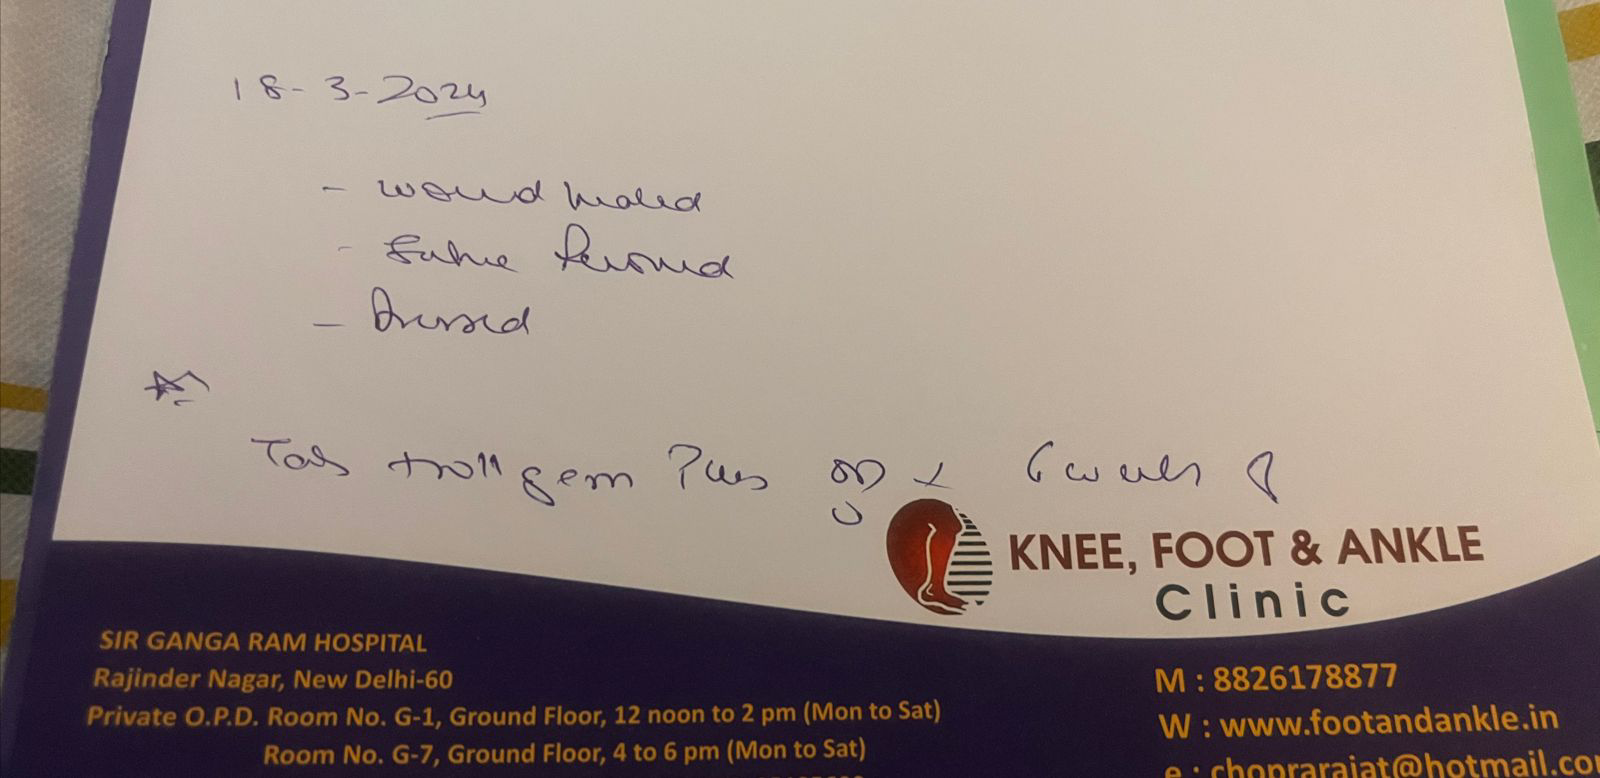 18-3-2024
- wound healed
- Suture Removed
- Dressed
Tab trollgem Plus OD x 6 weeks
KNEE, FOOT & ANKLE
Clinic
SIR GANGA RAM HOSPITAL
Rajinder Nagar, New Delhi-60
Private O.P.D. Room No. G-1, Ground Floor, 12 noon to 2 pm (Mon to Sat)
Room No. G-7, Ground Floor, 4 to 6 pm (Mon to Sat)
M : 8826178877
W : www.footandankle.in
e : choprarajat@hotmail.co